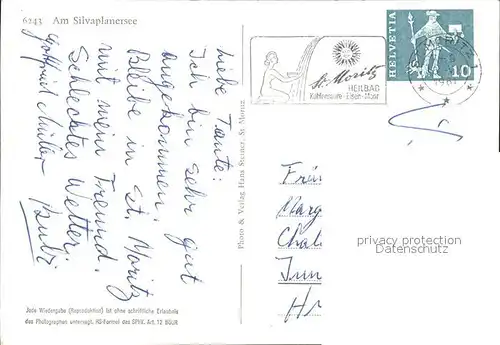 6243 Am Silvaplanersee
Liebe Tante:
Ich bin sehr gut
angekommen.
Bleibe in St. Moritz
mit mein Freund.
Schlechtes Wetter.
Gottfried Müller
Photo & Verlag Hans Steiner, St. Moritz
Jede Wiedergabe (Reproduktion) ist ohne schriftliche Erlaubnis
des Photographen untersagt. RS-Formel des SPHV. Art. 12 BGUR
St. Moritz
HEILBAD
Kohlensäure-Eisen-Moor
HELVETIA
10
Frä
Marg
Chal
Inn
privacy protection
Datenschutz